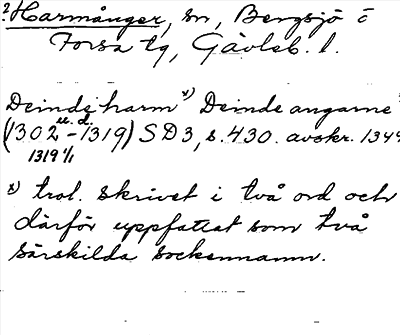 ?Harmånger, sn, Bergsjö o
Forsa tg, Gävleb. l.
Deinde harm x) Deinde angarne
u. d.
(1302 - 1319) SD3, s. 430. avskr. 1344
1319 1/1
x) trol. skrivet i två ord och
därför uppfattat som två
särskilda sockennamn.